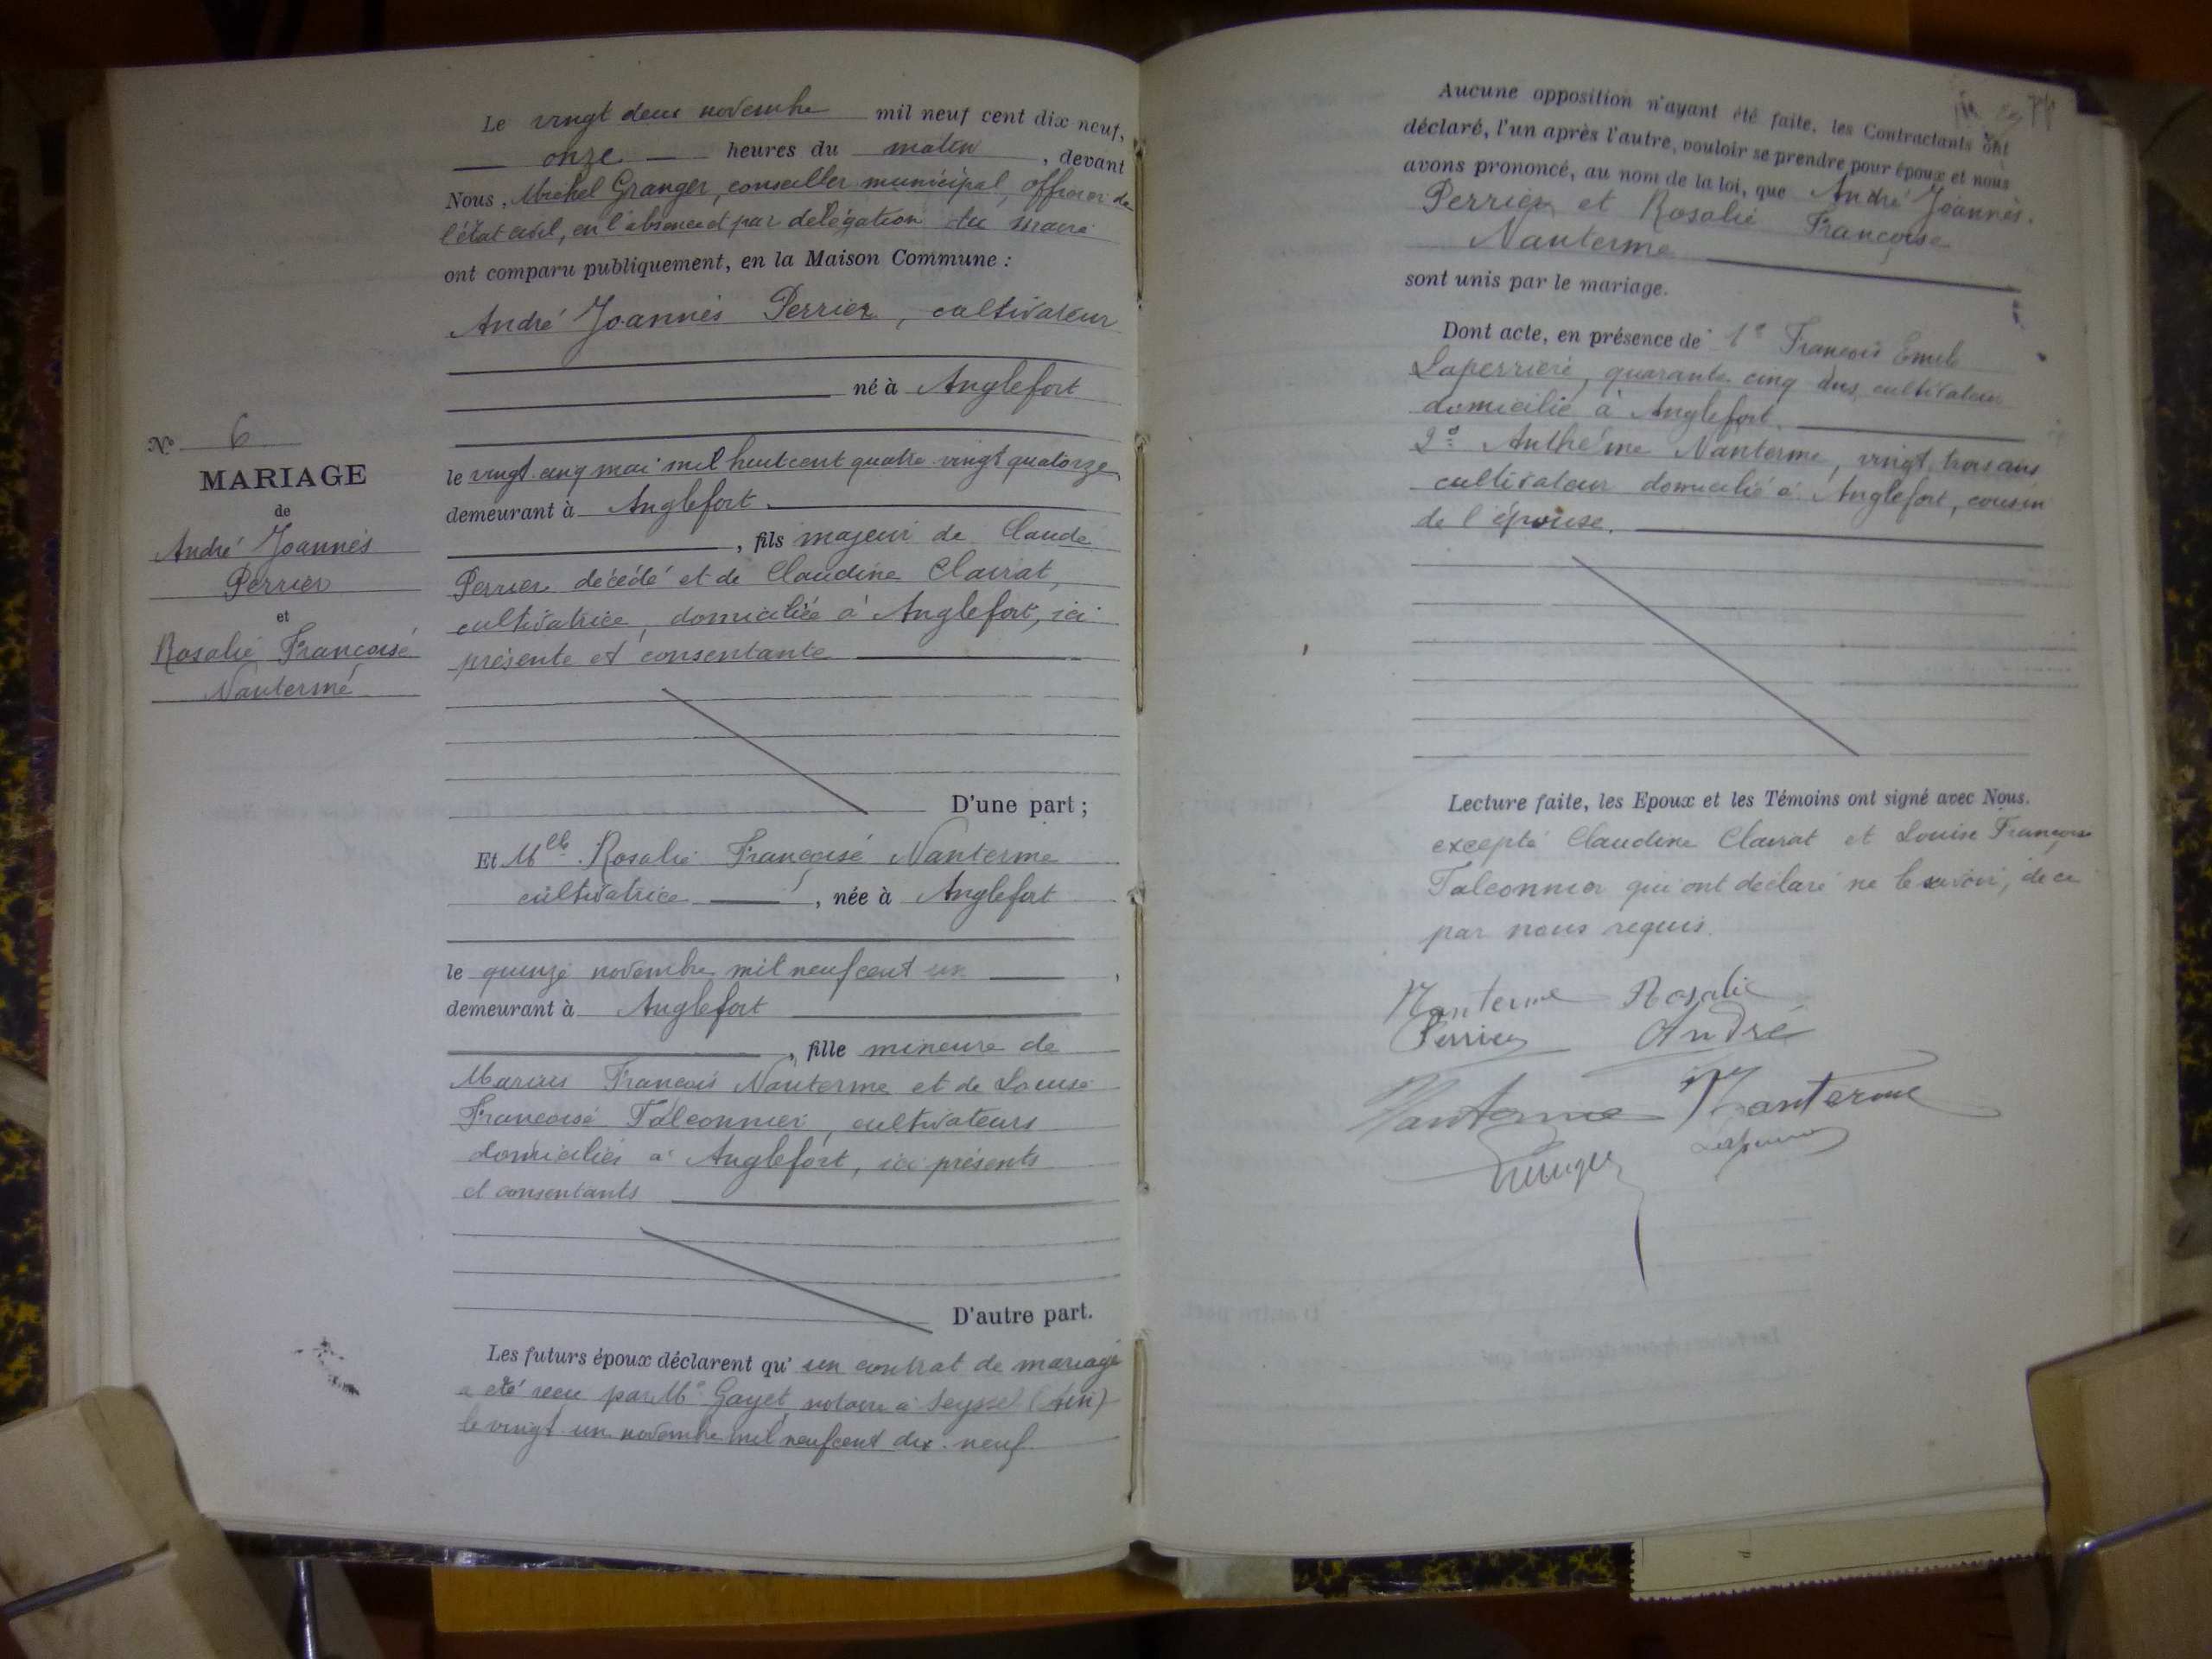 Le vingt deux novembre mil neuf cent dix-neuf,
onze heures du matin, devant
Nous, Michel Granger, conseiller municipal, officier de
l'état civil, en l'absence et par délégation du maire
ont comparu publiquement, en la Maison Commune :
André Joannès Perrier, cultivateur
né à Anglefort
le vingt cinq mai mil huit cent quatre vingt quatorze
demeurant à Anglefort.
, fils majeur de Claude
Perrier décédé et de Claudine Clairat,
cultivatrice, domiciliée à Anglefort, ici
présente et consentante
D'une part ;
Et Mlle Rosalie Françoise Nanterme
cultivatrice, née à Anglefort
le quinze novembre mil neuf cent un,
demeurant à Anglefort
, fille mineure de
Marius François Nanterme et de Louise
Françoise Falconnier, cultivateurs
domiciliés à Anglefort, ici présents
et consentants
D'autre part.
Les futurs époux déclarent qu' un contrat de mariage
a été reçu par Me Gayet, notaire à Seyssel (Ain)
le vingt un novembre mil neuf cent dix-neuf
No 6
MARIAGE
de
André Joannès
Perrier
et
Rosalie Françoise
Nanterme
Aucune opposition n'ayant été faite, les Contractants ont
déclaré, l'un après l'autre, vouloir se prendre pour époux et nous
avons prononcé, au nom de la loi, que André Joannès
Perrier et Rosalie Françoise
Nanterme
sont unis par le mariage.
Dont acte, en présence de 1° François Emile
Laperrière, quarante cinq ans, cultivateur
domicilié à Anglefort.
2° Anthelme Nanterme, vingt trois ans
cultivateur domicilié à Anglefort, cousin
de l'épouse.
Lecture faite, les Epoux et les Témoins ont signé avec Nous.
excepté Claudine Clairat et Louise Françoise
Falconnier qui ont déclaré ne le savoir, de ce
par nous requis.
Nanterme Rosalie
Perrier André
Nanterme Nanterme
Granger